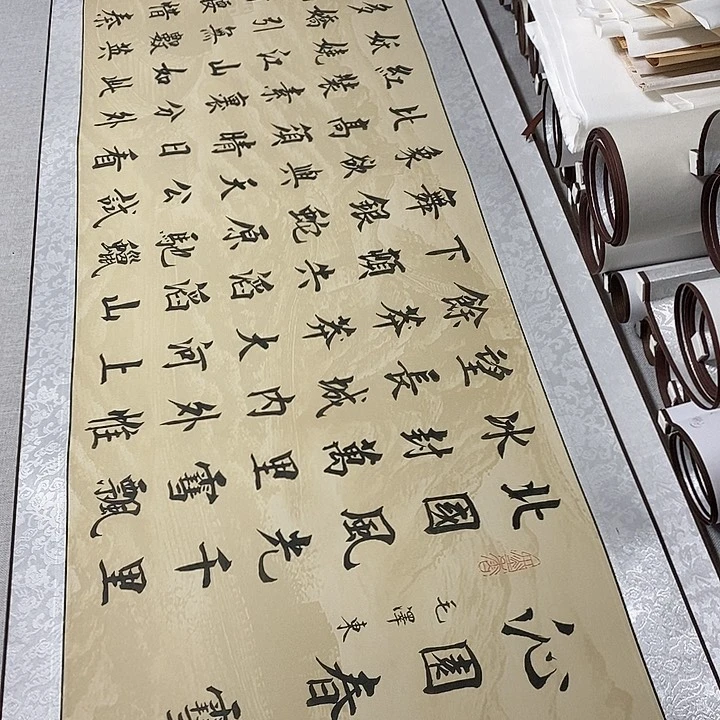 沁園春雪
毛澤東
北國風光千里
冰封萬里雪飄
望長城內外惟
餘莽莽大河上
下頓失滔滔山
舞銀蛇原馳蠟
象欲與天公試
比高須晴日看
紅裝素裹分外
妖嬈江山如此
多嬌引無數英
腰惜秦